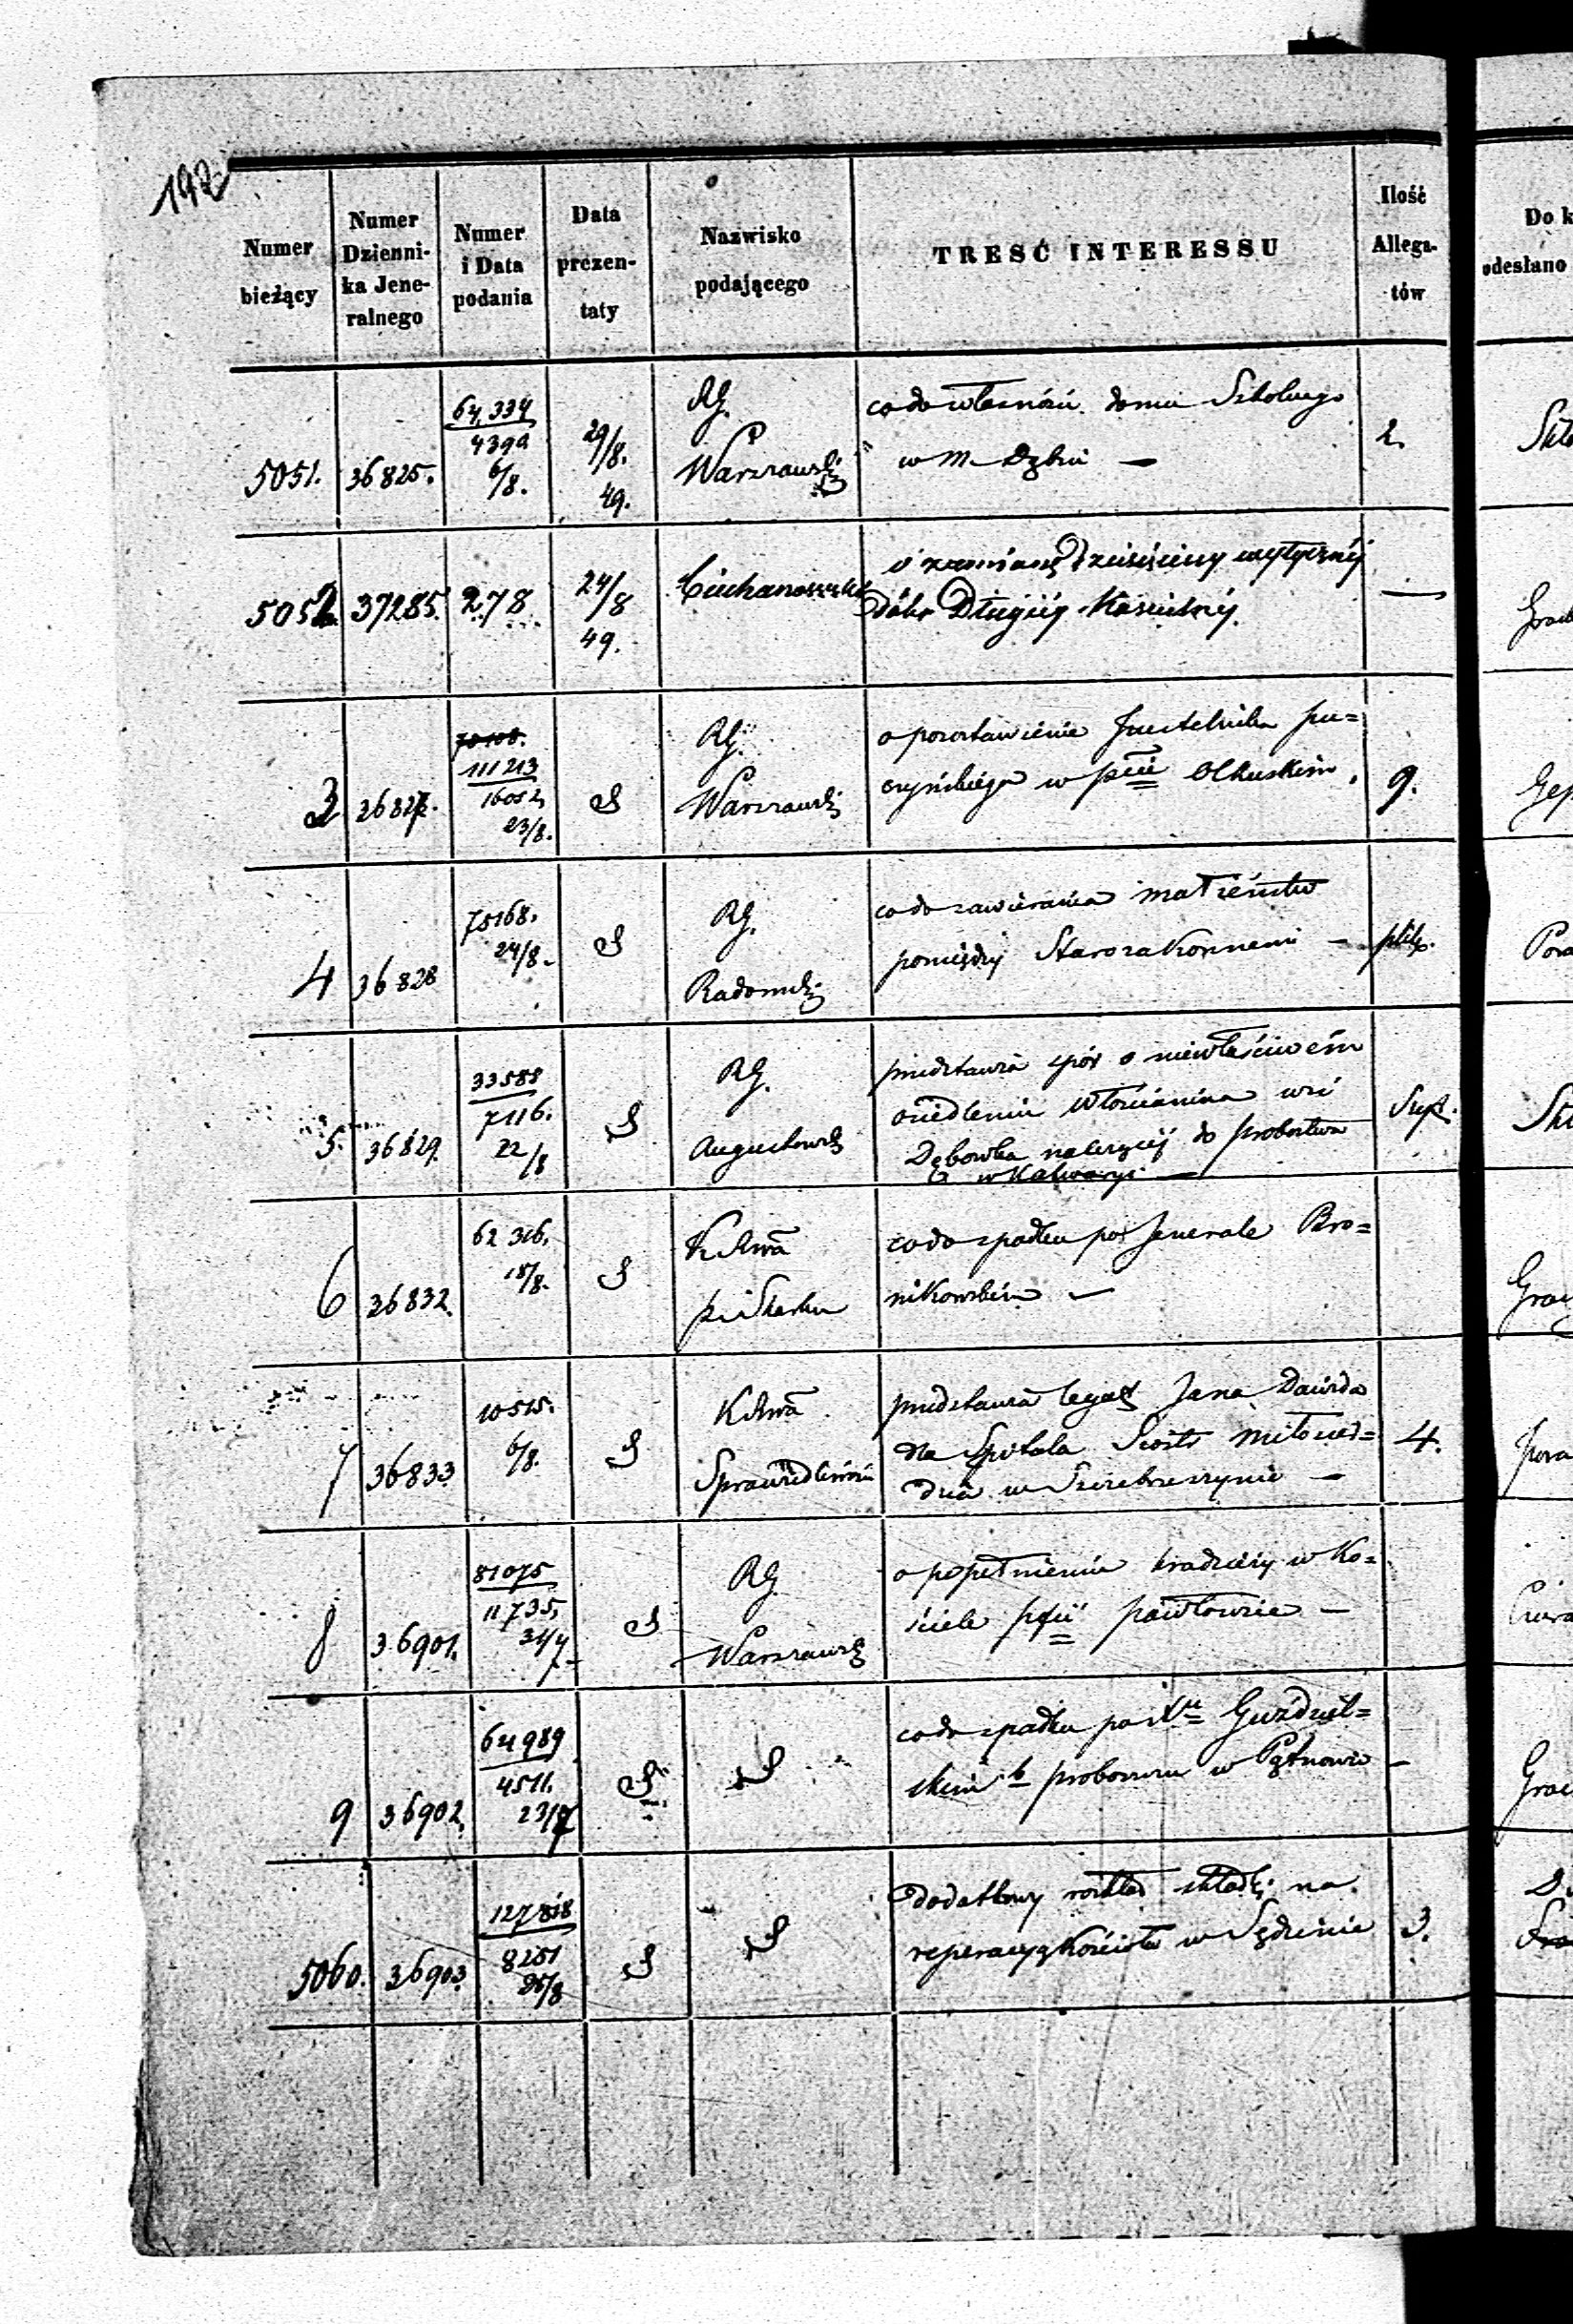 192
Numer bieżący
Numer Dzienni-ka Jene-ralnego
Numer i Data podania
Data prezen-taty
Nazwisko podającego
TREŚĆ INTERESSU
Ilość Allega-tów
Do k
odesłano
5051. 36825. 64,334 4392 6/8. 29/8. 49. RG. Warszawski
co do własności domu Szkolnego
w m. Dąbiu —
2.
5052 37285. 278 24/8 49. Ciechanowski
o zamianę dziesięciny wytycznéj
dóbr Długiéj Kościelnéj.
—
3 36827. 111213 16052 23/8. RG. Warszawski
o pozostawienie
w Olkuskim
9.
4 36828 75168. 24/8. RG. Radomski
co do zawierania małżeństw
pomiędzy Starozakonnemi —
5. 36829. 33588 7116. 22/8 RG. Augustowski
przedstawia spór o niewłaściwém
osiedleniu Włościanina wsi
Dębówka należącéj do probostwa
w Kalwaryi —
6 36832. 62316. 18/8. KRwa
co do spadku po Jenerale Bro=
nikowskim —
7 36833 10515. 6/8. KRwa Sprawiedliwości
przedstawia legat Jana Dawida
dla Szpitala Sióstr miłosier=
dzia w Szczebrzeszynie —
4.
8 36901. 81075 11735, 31/7 RG. Warszawski
o popełnieniu kradzieży w Ko=
ściele Pawłowie —
9 36902. 64989 4511. 23/7
co do spadku po
skim b proboszczu w Pątnowie —
5060. 36903. 127818 8251 25/8
Dodatkowy rozkład składki na
reperacyą Kościoła w Sędzinie
3.